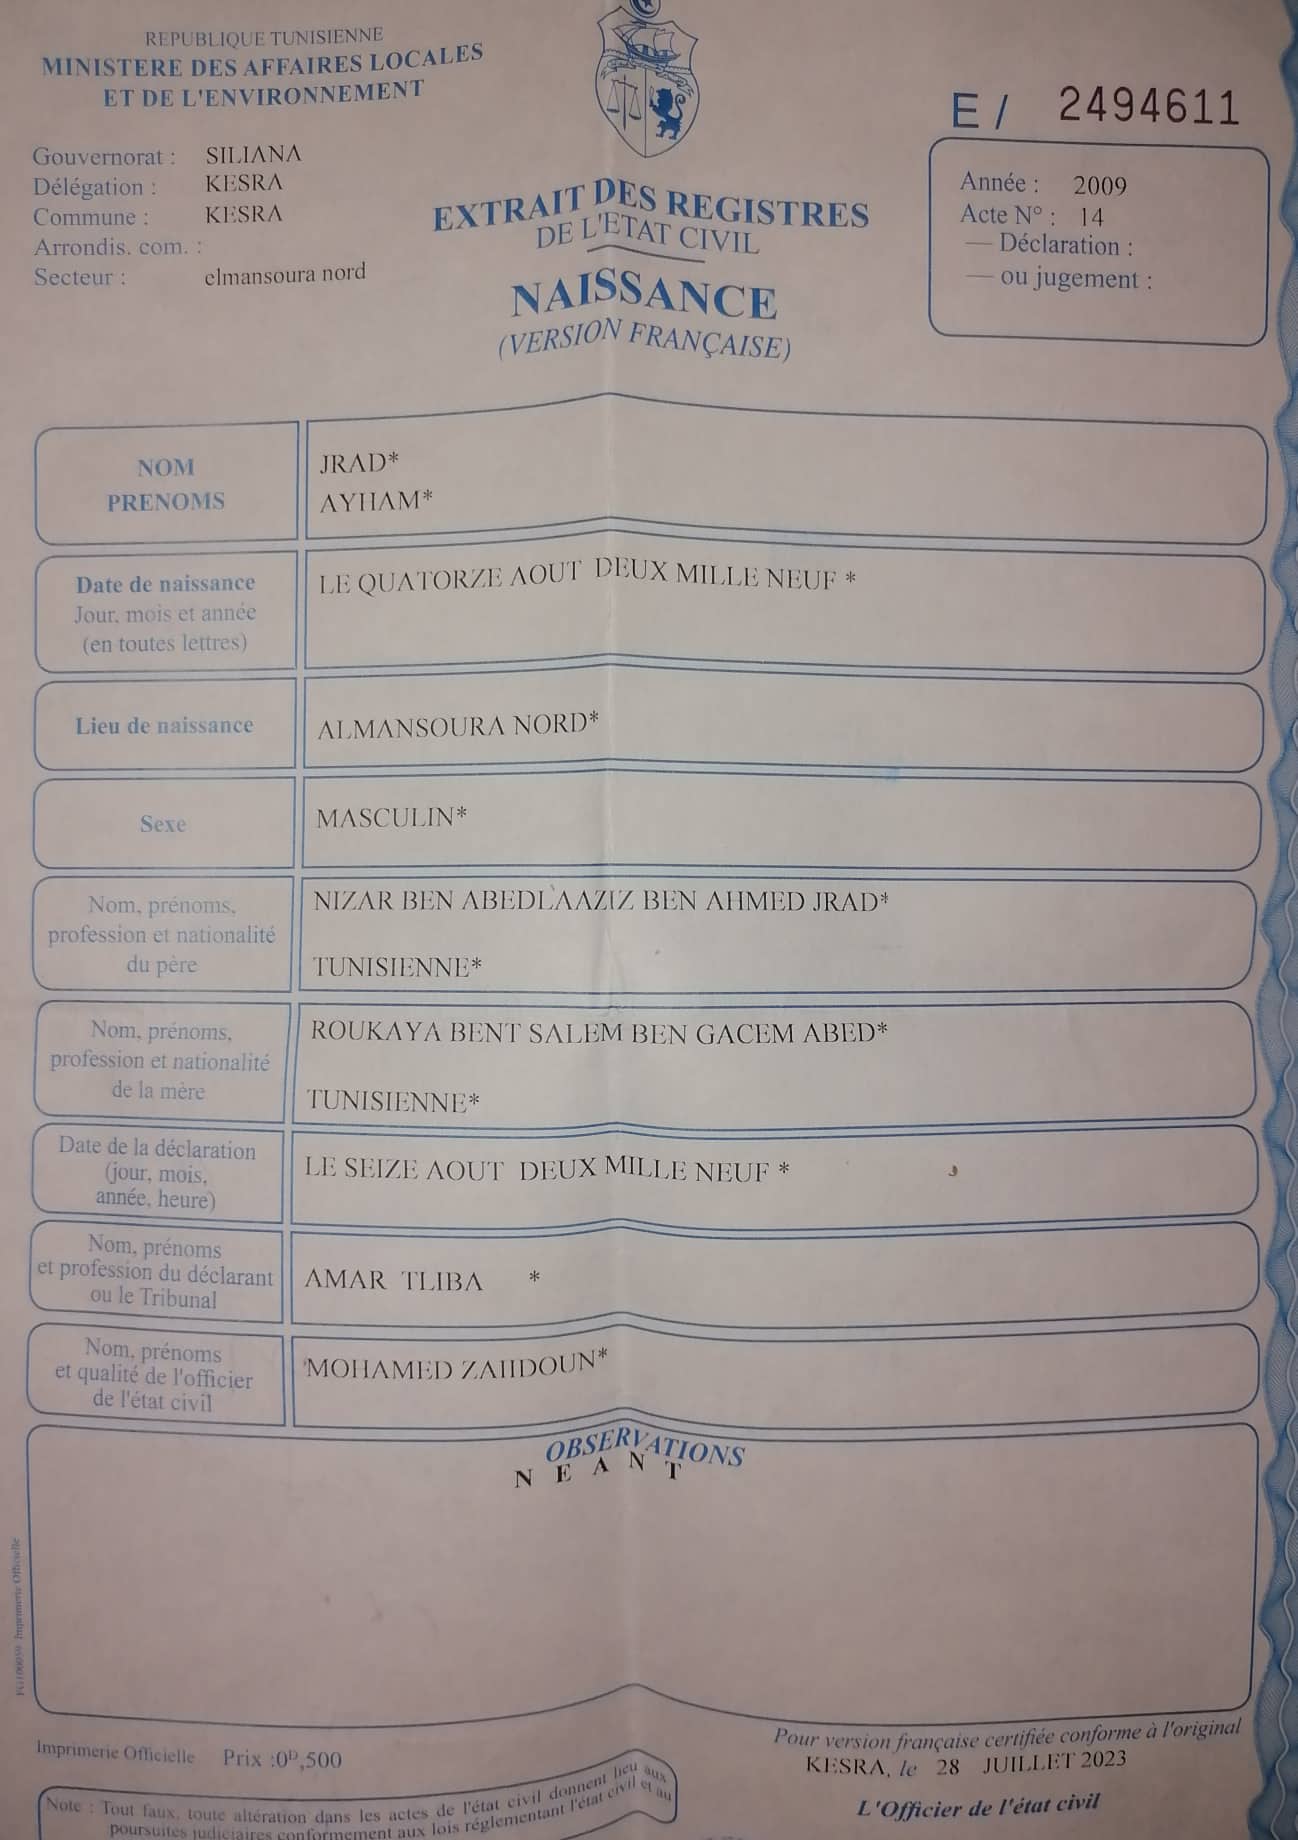 REPUBLIQUE TUNISIENNE
MINISTERE DES AFFAIRES LOCALES
ET DE L'ENVIRONNEMENT
E / 2494611
Gouvernorat : SILIANA
Délégation : KESRA
Commune : KESRA
Arrondis. com. :
Secteur : elmansoura nord
EXTRAIT DES REGISTRES
DE L'ETAT CIVIL
NAISSANCE
(VERSION FRANÇAISE)
Année : 2009
Acte N° : 14
— Déclaration :
— ou jugement :
NOM
PRENOMS
JRAD*
AYHAM*
Date de naissance
Jour, mois et année
(en toutes lettres)
LE QUATORZE AOUT DEUX MILLE NEUF *
Lieu de naissance
ALMANSOURA NORD*
Sexe
MASCULIN*
Nom, prénoms,
profession et nationalité
du père
NIZAR BEN ABEDL`AAZIZ BEN AHMED JRAD*
TUNISIENNE*
Nom, prénoms,
profession et nationalité
de la mère
ROUKAYA BENT SALEM BEN GACEM ABED*
TUNISIENNE*
Date de la déclaration
(jour, mois,
année, heure)
LE SEIZE AOUT DEUX MILLE NEUF *
Nom, prénoms
et profession du déclarant
ou le Tribunal
AMAR TLIBA *
Nom, prénoms
et qualité de l'officier
de l'état civil
MOHAMED ZAHDOUN*
OBSERVATIONS
N E A N T
Imprimerie Officielle
Imprimerie Officielle Prix :0ᴰ,500
Pour version française certifiée conforme à l'original
KESRA, le 28 JUILLET 2023
L'Officier de l'état civil
Note : Tout faux, toute altération dans les actes de l'état civil donnent lieu aux
poursuites judiciaires conformement aux lois réglementant l'état civil et au